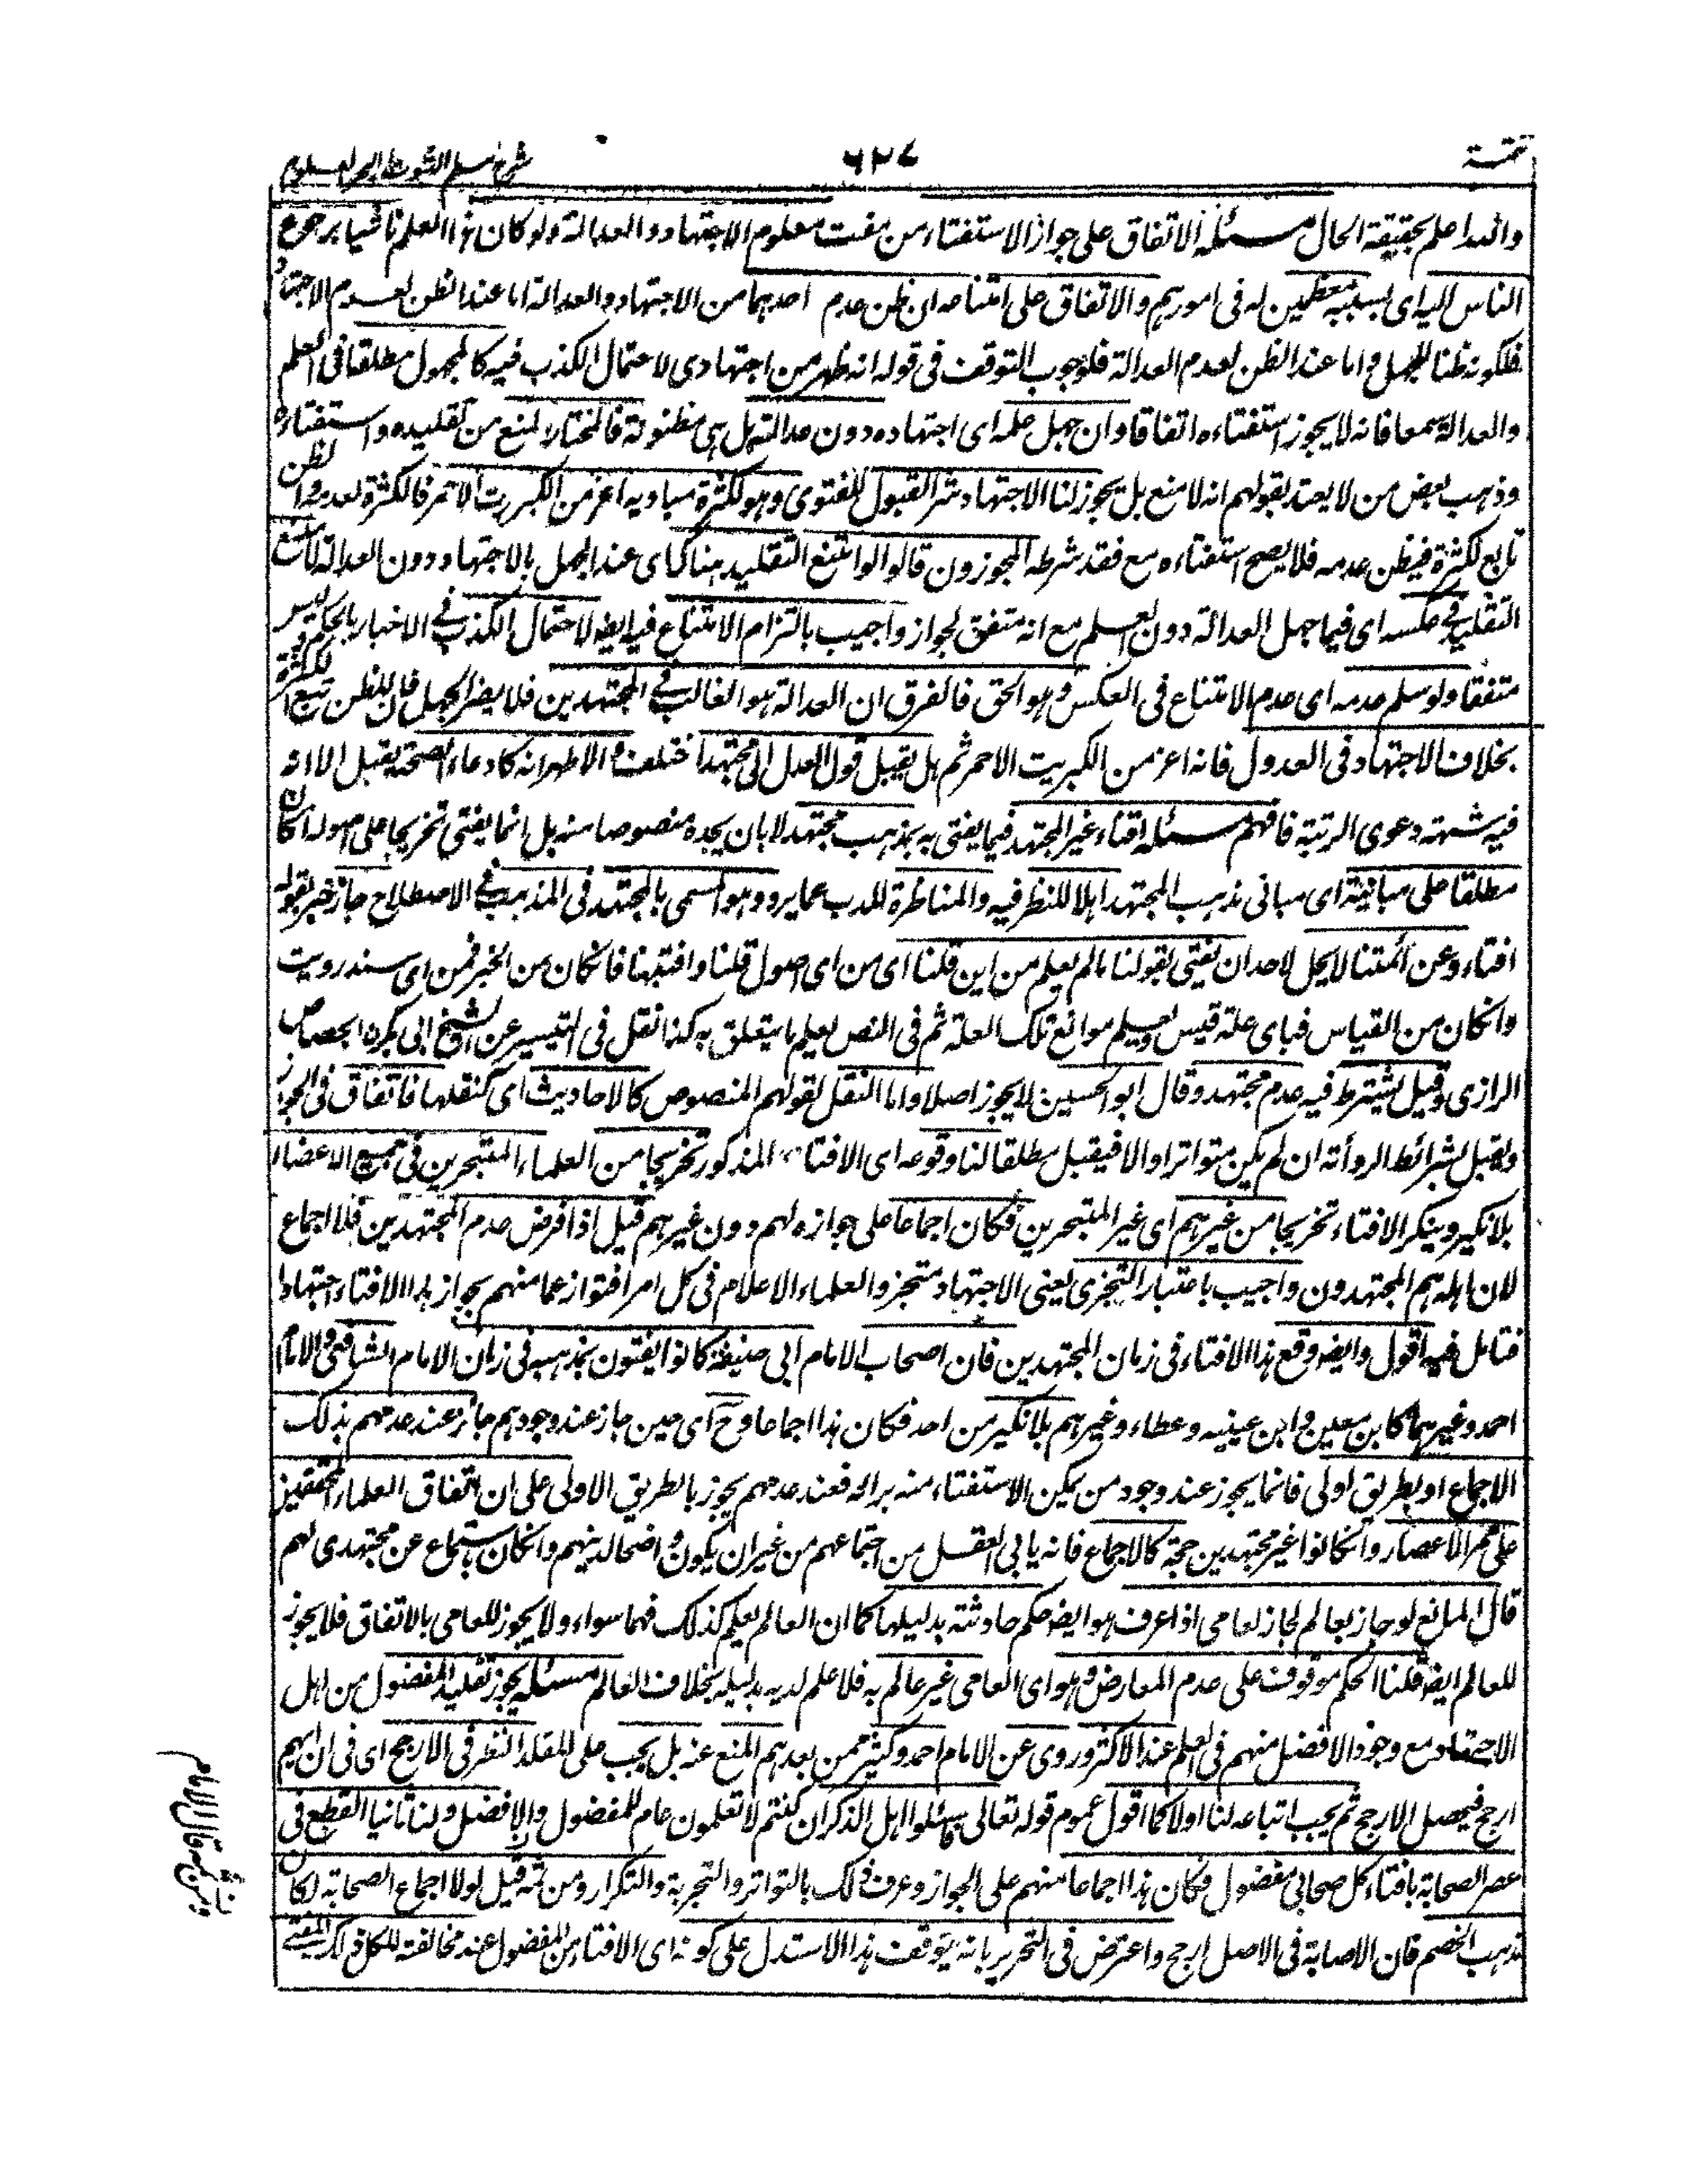 تتمة
٦٢٧
شرح مسلم الثبوت لبحر العلوم
والله اعلم بحقيقة الحال مسئلة الاتفاق على جواز الاستفتاء من مفت معلوم الاجتهاد والعدالة ولو كان هذا العلم ناشيا برجوع
الناس اليه اى بسببه معظمين له فى امورهم والاتفاق على امتناعه ان ظن عدم احدهما من الاجتهاد والعدالة اما عند الظن لعدم الاجتهاد
فلكونه ظنا للجهل واما عند الظن لعدم العدالة فلوجوب التوقف فى قوله انه ظهر من اجتهادى لاحتمال الكذب فيه كالمجهول مطلقا فى العلم
والعدالة معا فانه لا يجوز استفتاءه اتفاقا وان جهل علمه اى اجتهاده دون عدالته بل هى مظنونة فالمختار المنع من تقليده واستفتاءه
وذهب بعض من لا يعتد بقولهم انه لا منع بل يجوز لنا الاجتهاد شرط القبول للفتوى وهو لكثرة مباديه اعز من الكبريت الاحمر فالكثرة لعدمه والظن
تابع لكثرة فيظن عدمه فلا يصح استفتاءه مع فقد شرطه المجوزون قالوا لو امتنع التقليد هناك اى عند الجهل بالاجتهاد دون العدالة لامتنع
التقليد فى عكسه اى فيما جهل العدالة دون العلم مع انه متفق لجواز واجيب بالتزام الامتناع فيه ايضا لاحتمال الكذب فى الاخبار بالحكم فليس
متفقا ولو سلم عدمه اى عدم الامتناع فى العكس وهو الحق فالفرق ان العدالة هو الغالب فى المجتهدين فلا يضر الجهل فان الظن تبع الكثرة
بخلاف الاجتهاد فى العدول فانه اعز من الكبريت الاحمر ثم هل يقبل قول العدل انى مجتهد اختلف والاظهر انه كادعاء الصحبة يقبل الا انه
فيه شبهة دعوى الرتبة فافهم مسئلة افتاء غير المجتهد فيما يفتى به بمذهب مجتهد لا بان يجده منصوصا منه بل انما يفتى تخريجا على اصوله ان كان
مطلعا على مبانيه اى مبانى مذهب المجتهد اهلا للنظر فيه والمناظرة للذب عما يرد وهو المسمى بالمجتهد فى المذهب فى الاصطلاح جاز خبر لقوله
افتاء وعن ائمتنا لا يحل لاحد ان يفتى بقولنا ما لم يعلم من اين قلنا اى من اى اصول قلنا وافتينا فان كان من الخبر فمن اى سند رويت
وان كان من القياس فباى علة قيس ويعلم موانع تلك العلة ثم فى النص يعلم ما يتعلق به كذا نقل فى التيسير عن الشيخ ابى بكر الجصاص
الرازى وقيل يشترط فيه عدم مجتهد وقال ابو الحسين لا يجوز اصلا واما النقل لقولهم المنصوص كالاحاديث اى كنقلها فاتفاق فى الجواز
ويقبل بشرائط الرواة ان لم يكن متواترا والا فيقبل مطلقا لنا وقوعه اى الافتاء المذكور تخريجا من العلماء المتبحرين فى جميع الاعصار
بلا نكير وينكر الافتاء تخريجا من غيرهم اى غير المتبحرين فكان اجماعا على جوازه لهم دون غيرهم قيل اذا فرض عدم المجتهدين فلا اجماع
لان اهله هم المجتهدون واجيب باعتبار التجزى يعنى الاجتهاد متجز والعلماء الاعلام فى كل امر افتوا زعما منهم بجواز هذا الافتاء اجتهادا
فتامل فيه اقول وايضا وقع هذا الافتاء فى زمان المجتهدين فان اصحاب الامام ابى حنيفة كانوا يفتون بمذهبه فى زمان الامام الشافعى والامام
احمد وغيرهما كابن معين وابن عيينه وعطاء وغيرهم بلا نكير من احد فكان هذا اجماعا وح اى حين جاز عند وجودهم جاز عند عدمهم بذلك
الاجماع او بطريق اولى فانما يجوز عند وجود من يمكن الاستفتاء منه برائه فعند عدمهم يجوز بالطريق الاولى على ان اتفاق العلماء المحققين
على ممر الاعصار وان كانوا غير مجتهدين حجة كالاجماع فانه يابى العقل من اجتماعهم من غير ان يكون واضحا لديهم وان كان باستماع عن مجتهدى لهم
قال المانع لو جاز لعالم لجاز لعامى اذا عرف هو ايضا حكم حادثة بدليلها كما ان العالم يعلم كذلك فهما سواء ولا يجوز للعامى بالاتفاق فلا يجوز
للعالم ايضا قلنا الحكم موقوف على عدم المعارض وهو اى العامى غير عالم به فلا علم لديه بدليله بخلاف العالم مسئلة يجوز تقليد المفضول من اهل
الاجتهاد مع وجود الافضل منهم فى العلم عند الاكثر وروى عن الامام احمد وكثير ممن بعدهم المنع عنه بل يجب على المقلد النظر فى الارجح اى فى ان ايهم
ارجح فيحصل الارجح ثم يجب اتباعه لنا اولا كما اقول عموم قوله تعالى فاسئلوا اهل الذكر ان كنتم لا تعلمون عام للمفضول والافضل ولنا ثانيا القطع فى
عصر الصحابة بافتاء كل صحابى مفضول فكان هذا اجماعا منهم على الجواز وعرف ذلك بالتواتر والتجربة والتكرار ومن ثمه قيل لولا اجماع الصحابة لكان
مذهب الخصم فان الاصابة فى الاصل ارجح واعترض فى التحرير بانه يتوقف هذا الاستدل على كونه اى الافتاء من المفضول عند مخالفته للكل فى
ومن ثمه قال الامام